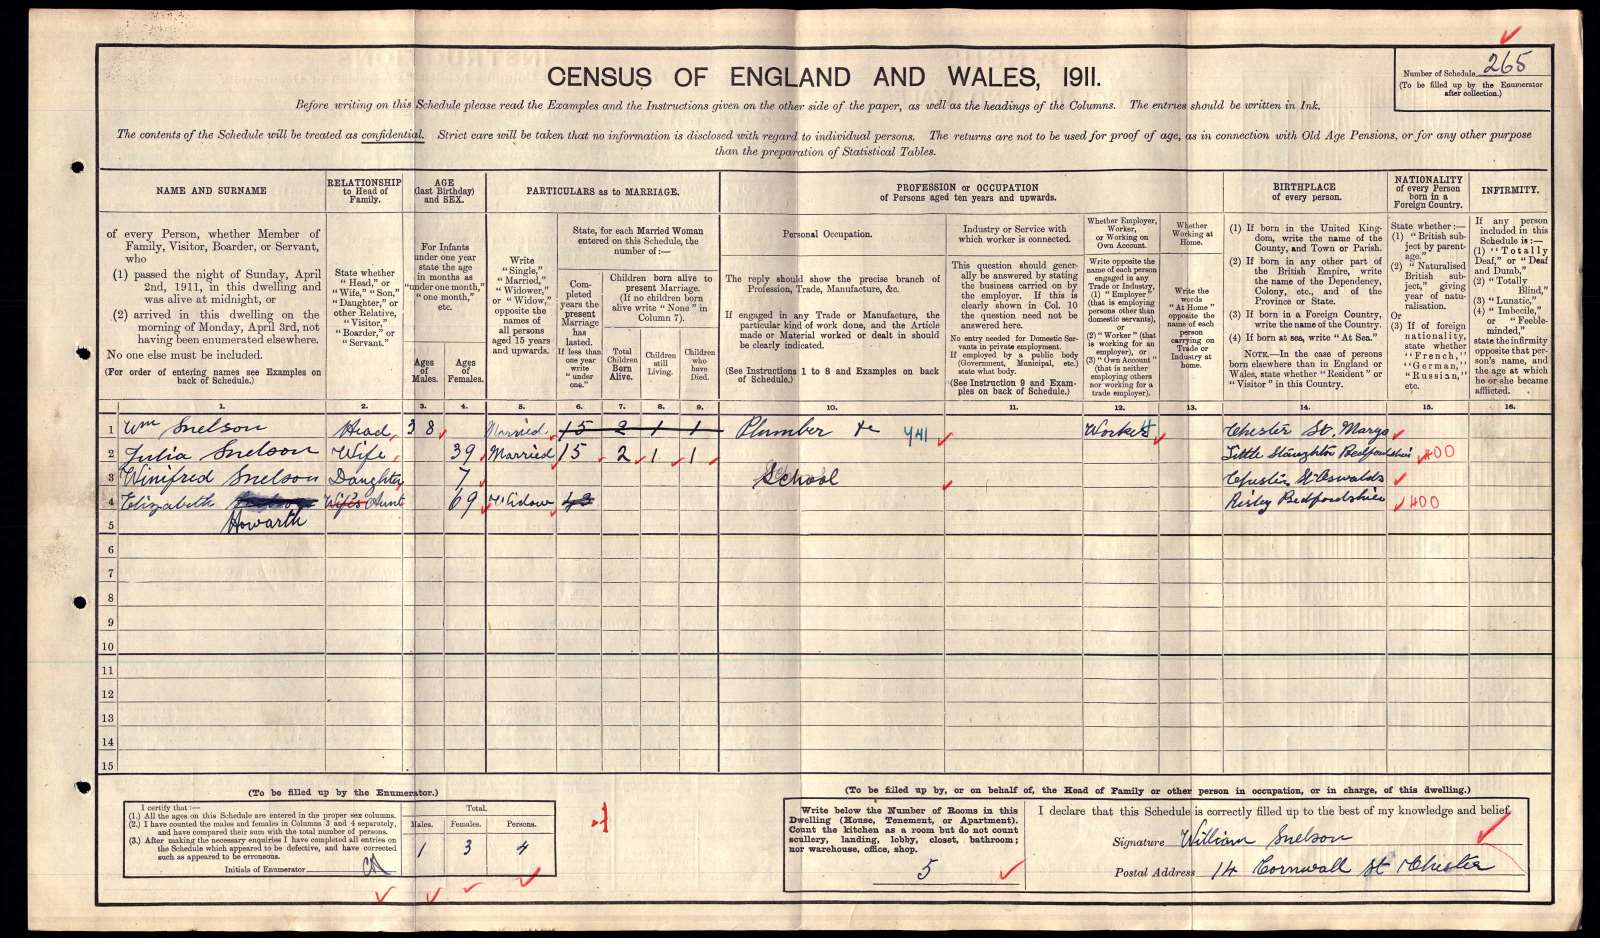 CENSUS OF ENGLAND AND WALES, 1911.
Number of Schedule 265
(To be filled up by the Enumerator
after collection.)
Before writing on this Schedule please read the Examples and the Instructions given on the other side of the paper, as well as the headings of the Columns. The entries should be written in Ink.
The contents of the Schedule will be treated as confidential. Strict care will be taken that no information is disclosed with regard to individual persons. The returns are not to be used for proof of age, as in connection with Old Age Pensions, or for any other purpose
than the preparation of Statistical Tables.
NAME AND SURNAME
of every Person, whether Member of
Family, Visitor, Boarder, or Servant,
who
(1) passed the night of Sunday, April
2nd, 1911, in this dwelling and
was alive at midnight, or
(2) arrived in this dwelling on the
morning of Monday, April 3rd, not
having been enumerated elsewhere.
No one else must be included.
(For order of entering names see Examples on
back of Schedule.)
RELATIONSHIP
to Head of
Family.
State whether
"Head," or
"Wife," "Son,"
"Daughter," or
other Relative,
"Visitor,"
"Boarder," or
"Servant."
AGE
(last Birthday)
and SEX.
For Infants
under one year
state the age
in months as
"under one month,"
"one month,"
etc.
Ages
of
Males.
Ages
of
Females.
PARTICULARS as to MARRIAGE.
Write
"Single,"
"Married,"
"Widower,"
or "Widow,"
opposite the
names of
all persons
aged 15 years
and upwards.
State, for each Married Woman
entered on this Schedule, the
number of:—
Com-
pleted
years the
present
Marriage
has
lasted.
If less than
one year
write
"under
one."
Children born alive to
present Marriage.
(If no children born
alive write "None" in
Column 7).
Total
Children
Born
Alive.
Children
still
Living.
Children
who
have
Died.
PROFESSION or OCCUPATION
of Persons aged ten years and upwards.
Personal Occupation.
The reply should show the precise branch of
Profession, Trade, Manufacture, &c.
If engaged in any Trade or Manufacture, the
particular kind of work done, and the Article
made or Material worked or dealt in should
be clearly indicated.
(See Instructions 1 to 8 and Examples on back
of Schedule.)
Industry or Service with
which worker is connected.
This question should gener-
ally be answered by stating
the business carried on by
the employer. If this is
clearly shown in Col. 10
the question need not be
answered here.
No entry needed for Domestic Ser-
vants in private employment.
If employed by a public body
(Government, Municipal, etc.)
state what body.
(See Instruction 9 and Exam-
ples on back of Schedule.)
Whether Employer,
Worker,
or Working on
Own Account.
Write opposite the
name of each person
engaged in any
Trade or Industry,
(1) "Employer"
(that is employing
persons other than
domestic servants),
or
(2) "Worker" (that
is working for an
employer), or
(3) "Own Account"
(that is neither
employing others
nor working for a
trade employer).
Whether
Working at
Home.
Write the
words
"At Home"
opposite the
name of each
person
carrying on
Trade or
Industry at
home.
BIRTHPLACE
of every person.
(1) If born in the United King-
dom, write the name of the
County, and Town or Parish.
(2) If born in any other part of
the British Empire, write
the name of the Dependency,
Colony, etc., and of the
Province or State.
(3) If born in a Foreign Country,
write the name of the Country.
(4) If born at sea, write "At Sea."
NOTE.—In the case of persons
born elsewhere than in England or
Wales, state whether "Resident" or
"Visitor" in this Country.
NATIONALITY
of every Person
born in a
Foreign Country.
State whether:—
(1) "British sub-
ject by parent-
age."
(2) "Naturalised
British sub-
ject," giving
year of natu-
ralisation.
Or
(3) If of foreign
nationality,
state whether
"French,"
"German,"
"Russian,"
etc.
INFIRMITY.
If any person
included in this
Schedule is:—
(1) "Totally
Deaf," or "Deaf
and Dumb,"
(2) "Totally
Blind,"
(3) "Lunatic,"
(4) "Imbecile,"
or "Feeble-
minded,"
state the infirmity
opposite that per-
son's name, and
the age at which
he or she became
afflicted.
1. 2. 3. 4. 5. 6. 7. 8. 9. 10. 11. 12. 13. 14. 15. 16.
1 Wm Snelson Head 38 Married 15 2 1 1 Plumber &c 941 Worker Chester St. Marys
2 Julia Snelson Wife 39 Married 15 2 1 1 Little Staughton Bedfordshire 400
3 Winifred Snelson Daughter 7 School Chester St Oswalds
4 Elizabeth Wife's Aunt 69 Widow 43 Risley Bedfordshire 400
5 Howarth
6
7
8
9
10
11
12
13
14
15
(To be filled up by the Enumerator.)
I certify that:—
(1.) All the ages on this Schedule are entered in the proper sex columns.
(2.) I have counted the males and females in Columns 3 and 4 separately,
and have compared their sum with the total number of persons.
(3.) After making the necessary enquiries I have completed all entries on
the Schedule which appeared to be defective, and have corrected
such as appeared to be erroneous.
Initials of Enumerator
Total.
Males. Females. Persons.
1 3 4
(To be filled up by, or on behalf of, the Head of Family or other person in occupation, or in charge, of this dwelling.)
Write below the Number of Rooms in this
Dwelling (House, Tenement, or Apartment).
Count the kitchen as a room but do not count
scullery, landing, lobby, closet, bathroom;
nor warehouse, office, shop.
5
I declare that this Schedule is correctly filled up to the best of my knowledge and belief.
Signature William Snelson
Postal Address 14 Cornwall St Chester